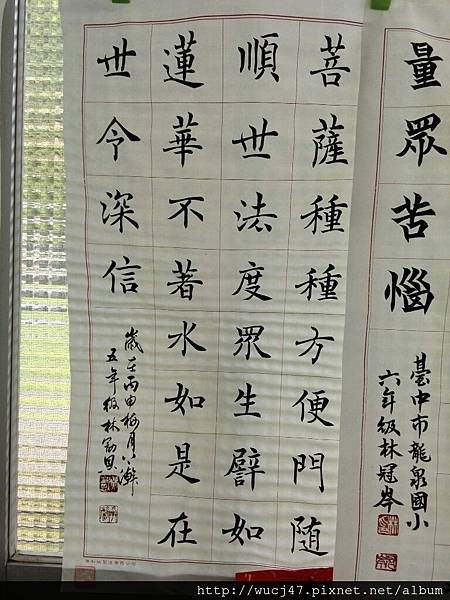 量眾苦惱
臺中市龍泉國小
六年級林冠岑
菩薩種種方便門随
順世法度眾生譬如
蓮華不著水如是在
世令深信
歲在丙申梅月
五年級林
http://wucj47.pixnet.net/album